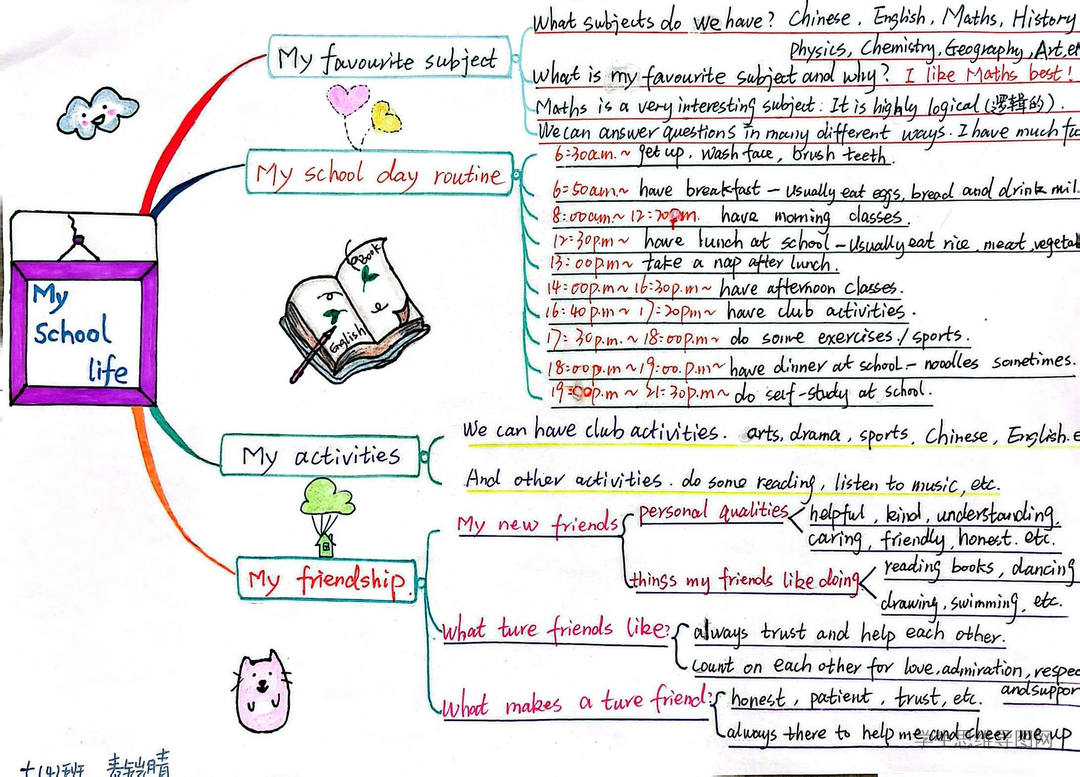 My favourite subject
What subjects do we have? Chinese, English, Maths, History
Physics, Chemistry, Geography, Art, et
What is my favourite subject and why? I like Maths best!
Maths is a very interesting subject. It is highly logical (逻辑的).
We can answer questions in many different ways. I have much fu
My school day routine
6:30a.m.~ get up, wash face, brush teeth.
6:50am.~ have breakfast - usually eat eggs, bread and drink mil.
8:00am.~ 12:20pm. have morning classes.
12:30p.m~ have lunch at school - usually eat rice, meat, vegetab
13:00p.m~ take a nap after lunch.
14:00p.m~ 16:30p.m~ have afternoon classes.
16:40p.m~ 17:20pm~ have club activities.
17:30p.m.~ 18:00p.m~ do some exercises/sports.
18:00p.m~ 19:00.p.m~ have dinner at school - noodles sometimes.
19:00p.m~ 21:30p.m~ do self-study at school.
Book
English
My
School
life
My activities
We can have club activities. arts, drama, sports, Chinese, English. e
And other activities. do some reading, listen to music, etc.
My friendship.
My new friends
personal qualities
helpful, kind, understanding,
caring, friendly, honest. etc.
things my friends like doing
reading books, dancing
drawing, swimming, etc.
What ture friends like?
always trust and help each other.
count on each other for love, admiration, respec
and suppor
What makes a ture friend?
honest, patient, trust, etc.
always there to help me and cheer me up
学生思维导图网